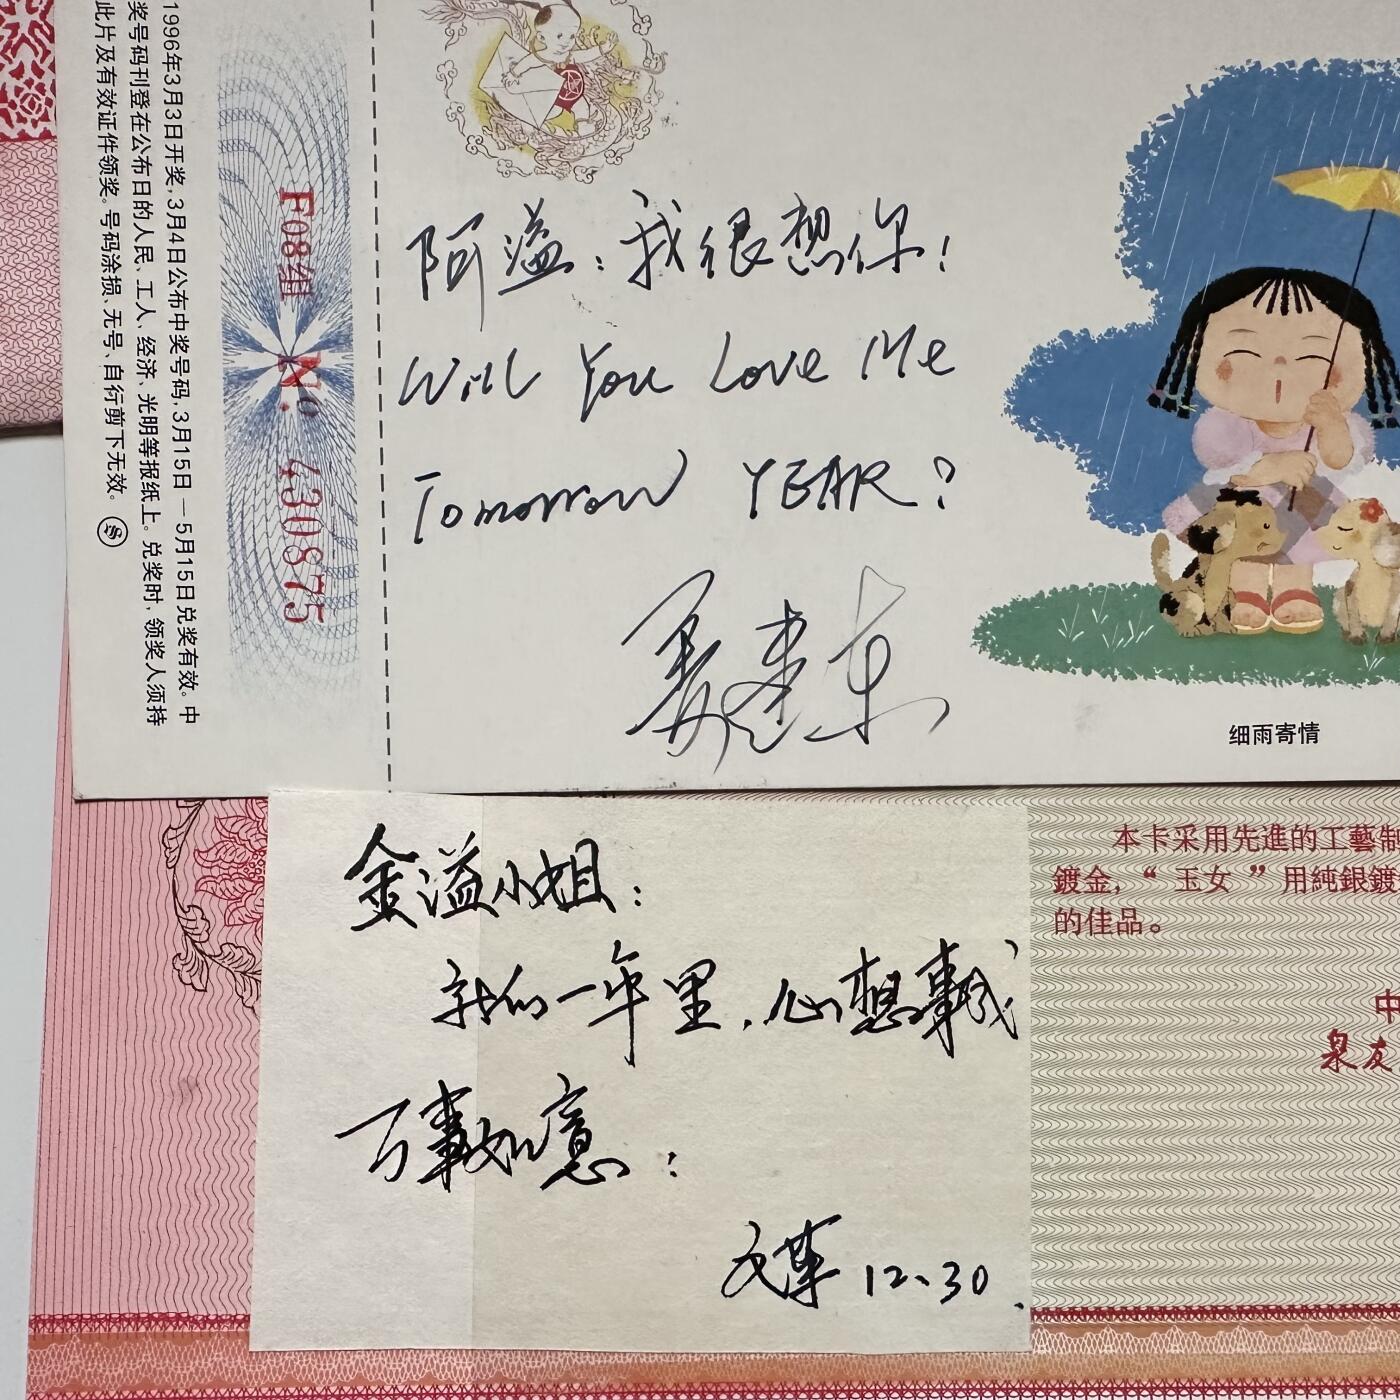 1996年3月3日开奖,3月4日公布中奖号码,3月15日—5月15日兑奖有效。中
奖号码刊登在公布日的人民、工人、经济、光明等报纸上。兑奖时,领奖人须持
此片及有效证件领奖。号码涂损、无号、自行剪下无效。
F08组 No. 430875
阿溢:我很想你!
Will You Love Me
Tomorrow YEAR?
姜建东
细雨寄情
金溢小姐:
新的一年里,心想事成
万事如意:
12.30.
本卡采用先進的工藝制
鍍金,“玉女”用純銀鍍
的佳品。
中
泉友